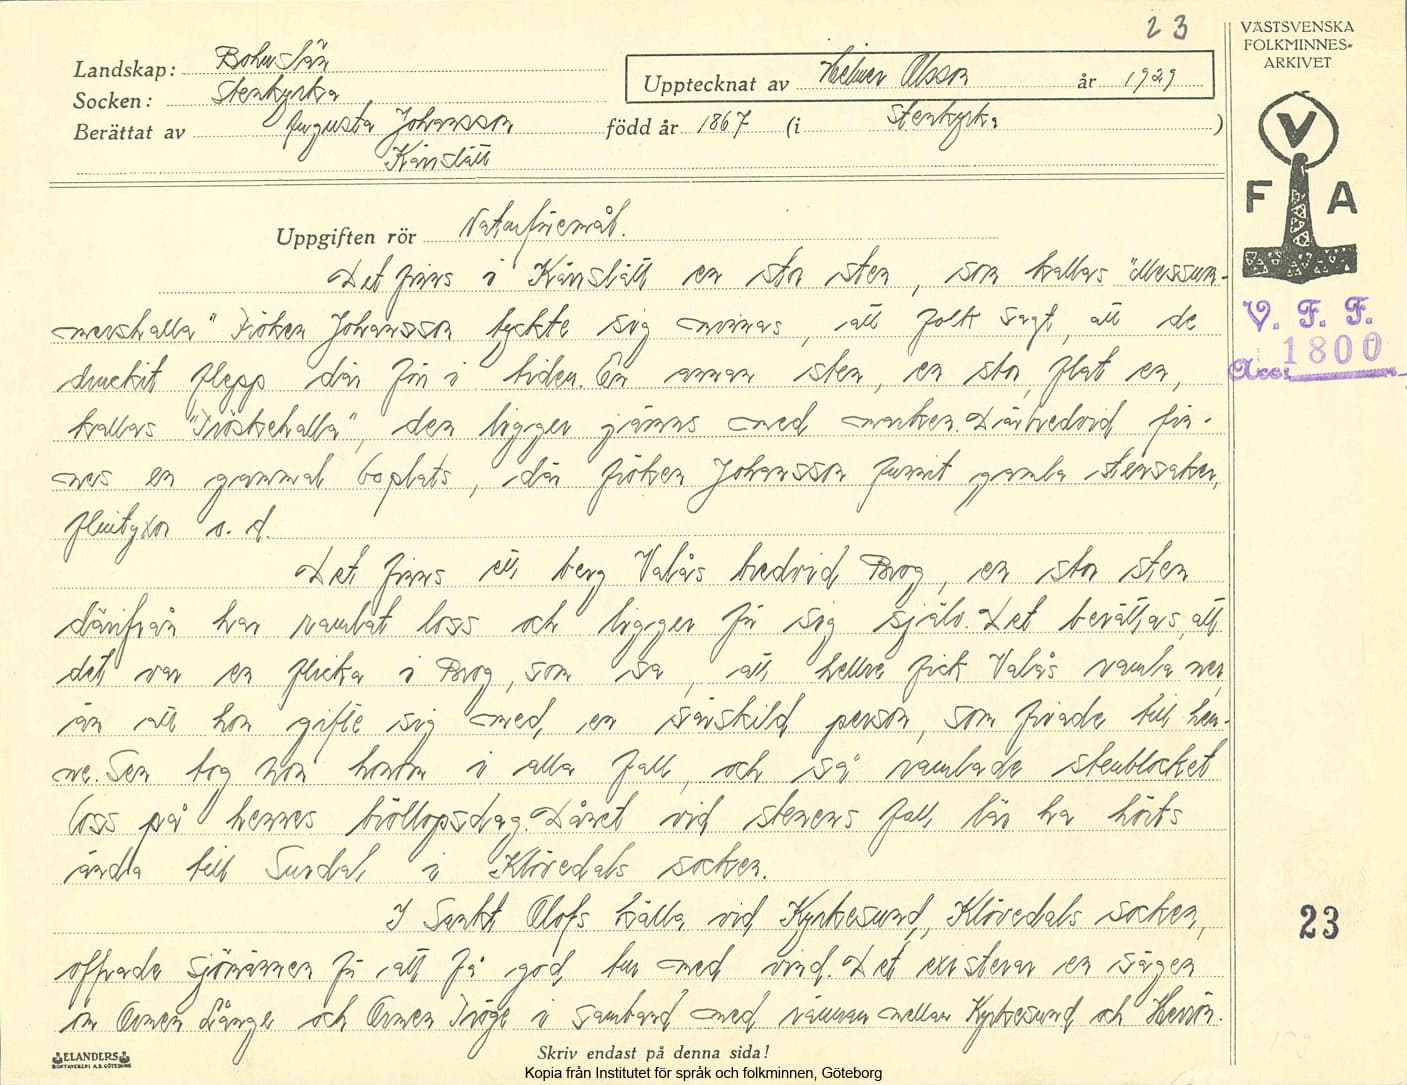 23
VÄSTSVENSKA
FOLKMINNES-
ARKIVET
Landskap: Bohuslän
Socken: Stenkyrka
Upptecknat av Helmer Olsson år 1929
Berättat av Augusta Johansson född år 1867 (i Stenkyrka )
Kårslätt
V
F A
Uppgiften rör Naturföremål.
Det finns i Kårslätt en stor sten, som kallas "Messum-
mershalla" Fröken Johansson tyckte sig minnas, att folk sagt, att de
druckit flepp där för i tiden. En annan sten, en stor, flat en,
kallas "Tröskehalla", den ligger jämns med marken. Därbredvid fin-
nes en gammal boplats, där fröken Johansson funnit gamla stensaker,
flintyxor o. d.
Det finns ett berg Valås bredvid Brog, en stor sten
därifrån har ramlat loss och ligger för sig själv. Det berättas, att
det var en flicka i Brog, som sa, att hellre fick Valås ramla ner,
än att hon gifte sig med en särskild person, som friade till hen-
ne. Sen tog hon honom i alla fall, och så ramlade stenblocket
loss på hennes bröllopsdag. Dånet vid stenens fall lär ha hörts
ända till Sundal i Klövedals socken.
I Sankt Olofs källa vid Kyrkesund, Klövedals socken,
offrade sjömännen för att få god tur med vind. Det existerar en sägen
om Ormen Långe och Ormen Tröge i samband med rännan mellan Kyrkesund och Herrön.
V. F. F.
Acc: 1800
23
ELANDERS
BOKTRYCKERI A.B. GÖTEBORG
Skriv endast på denna sida!
Kopia från Institutet för språk och folkminnen, Göteborg